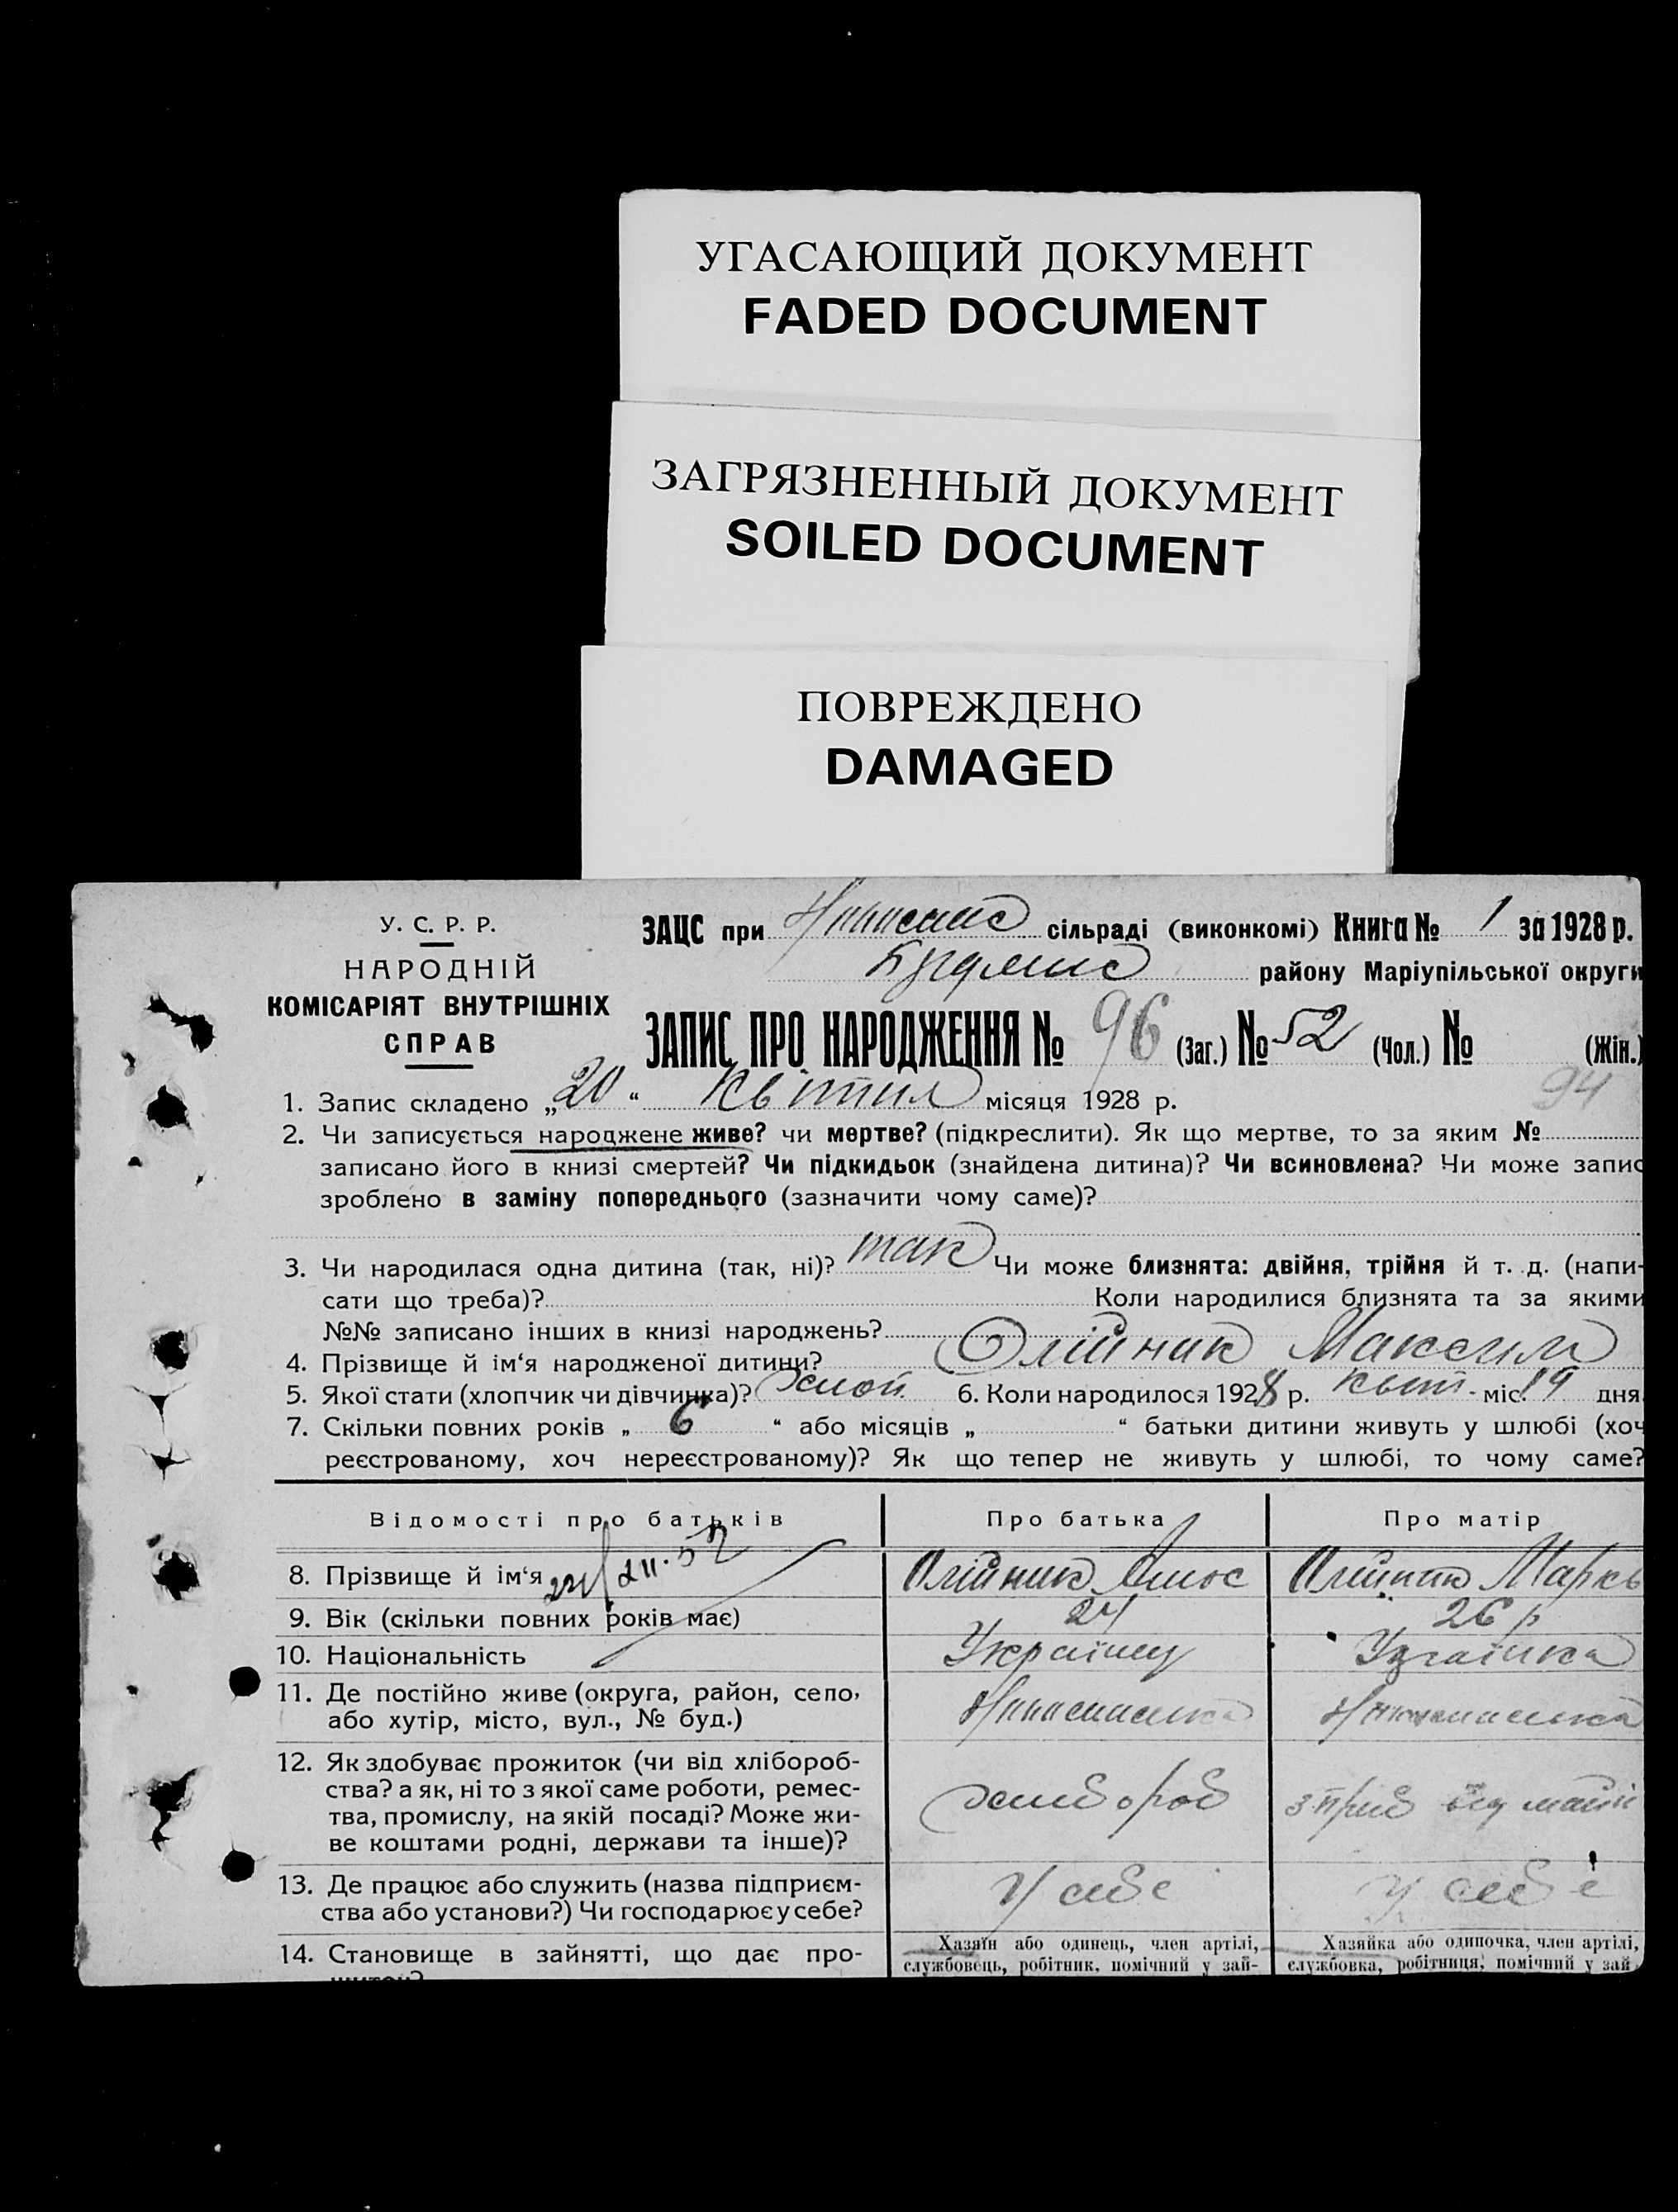 УГАСАЮЩИЙ ДОКУМЕНТ
FADED DOCUMENT
ЗАГРЯЗНЕННЫЙ ДОКУМЕНТ
SOILED DOCUMENT
ПОВРЕЖДЕНО
DAMAGED
У. С. Р. Р.
НАРОДНІЙ
КОМІСАРІЯТ ВНУТРІШНІХ
СПРАВ
ЗАЦС при сільраді (виконкомі) Книга № 1 за 1928 р.
району Маріупільської округи
ЗАПИС ПРО НАРОДЖЕННЯ № 96 (Заг.) № 52 (Чол.) № (Жін.)
94
1. Запис складено „20“ квітня місяця 1928 р.
2. Чи записується народжене живе? чи мертве? (підкреслити). Як що мертве, то за яким №
записано його в книзі смертей? Чи підкидьок (знайдена дитина)? Чи всиновлена? Чи може запис
зроблено в заміну попереднього (зазначити чому саме)?
3. Чи народилася одна дитина (так, ні)? так Чи може близнята: двійня, трійня й т. д. (напи-
сати що треба)? Коли народилися близнята та за якими
№№ записано інших в книзі народжень?
4. Прізвище й ім‘я народженої дитини? Олійник Максим
5. Якої стати (хлопчик чи дівчинка)? хлоп. 6. Коли народилося 1928 р. квіт. міс. 19 дня.
7. Скільки повних років „ 6 “ або місяців „ “ батьки дитини живуть у шлюбі (хоч
реєстрованому, хоч нереєстрованому)? Як що тепер не живуть у шлюбі, то чому саме?
Відомості про батьків Про батька Про матір
8. Прізвище й ім‘я Олійник
9. Вік (скільки повних років має) 24 26 р
10. Національність Українец Українка
11. Де постійно живе (округа, район, село,
або хутір, місто, вул., № буд.)
12. Як здобуває прожиток (чи від хлібороб-
ства? а як, ні то з якої саме роботи, ремес-
тва, промислу, на якій посаді? Може жи-
ве коштами родні, держави та інше)?
хлібороб
13. Де працює або служить (назва підприєм-
ства або установи?) Чи господарює у себе?
У себе У себе
14. Становище в зайнятті, що дає про-
Хазяїн або одинець, член артілі,
службовець, робітник, помічний у зай-
Хазяйка або одиночка, член артілі,
службовка, робітниця, помічний у зай